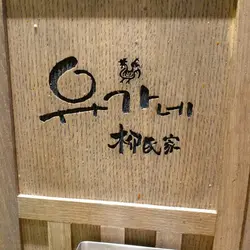 유가네
柳氏家